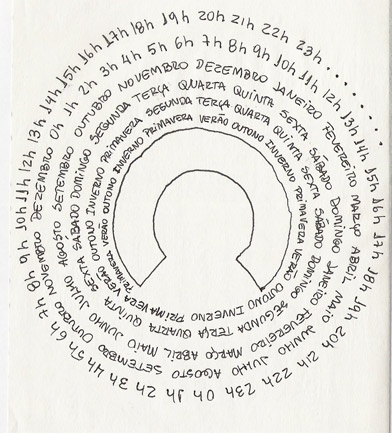 PRIMAVERA VERÃO OUTONO INVERNO PRIMAVERA VERÃO OUTONO INVERNO PRIMAVERA VERÃO OUTONO INVERNO PRIMAVERA VERÃO OUTONO INVERNO PRIMAVERA SEGUNDA TERÇA QUARTA QUINTA SEXTA SÁBADO DOMINGO SEGUNDA TERÇA QUARTA QUINTA SEXTA SÁBADO DOMINGO SEGUNDA TERÇA QUARTA QUINTA SEXTA SÁBADO DOMINGO JANEIRO FEVEREIRO MARÇO ABRIL MAIO JUNHO JULHO AGOSTO SETEMBRO OUTUBRO NOVEMBRO DEZEMBRO JANEIRO FEVEREIRO MARÇO ABRIL MAIO JUNHO JULHO AGOSTO SETEMBRO OUTUBRO NOVEMBRO DEZEMBRO 0h 1h 2h 3h 4h 5h 6h 7h 8h 9h 10h 11h 12h 13h 14h 15h 16h 17h 18h 19h 20h 21h 22h 23h 0h 1h 2h 3h 4h 5h 6h 7h 8h 9h 10h 11h 12h 13h 14h 15h 16h 17h 18h 19h 20h 21h 22h 23h . . . . . . . .